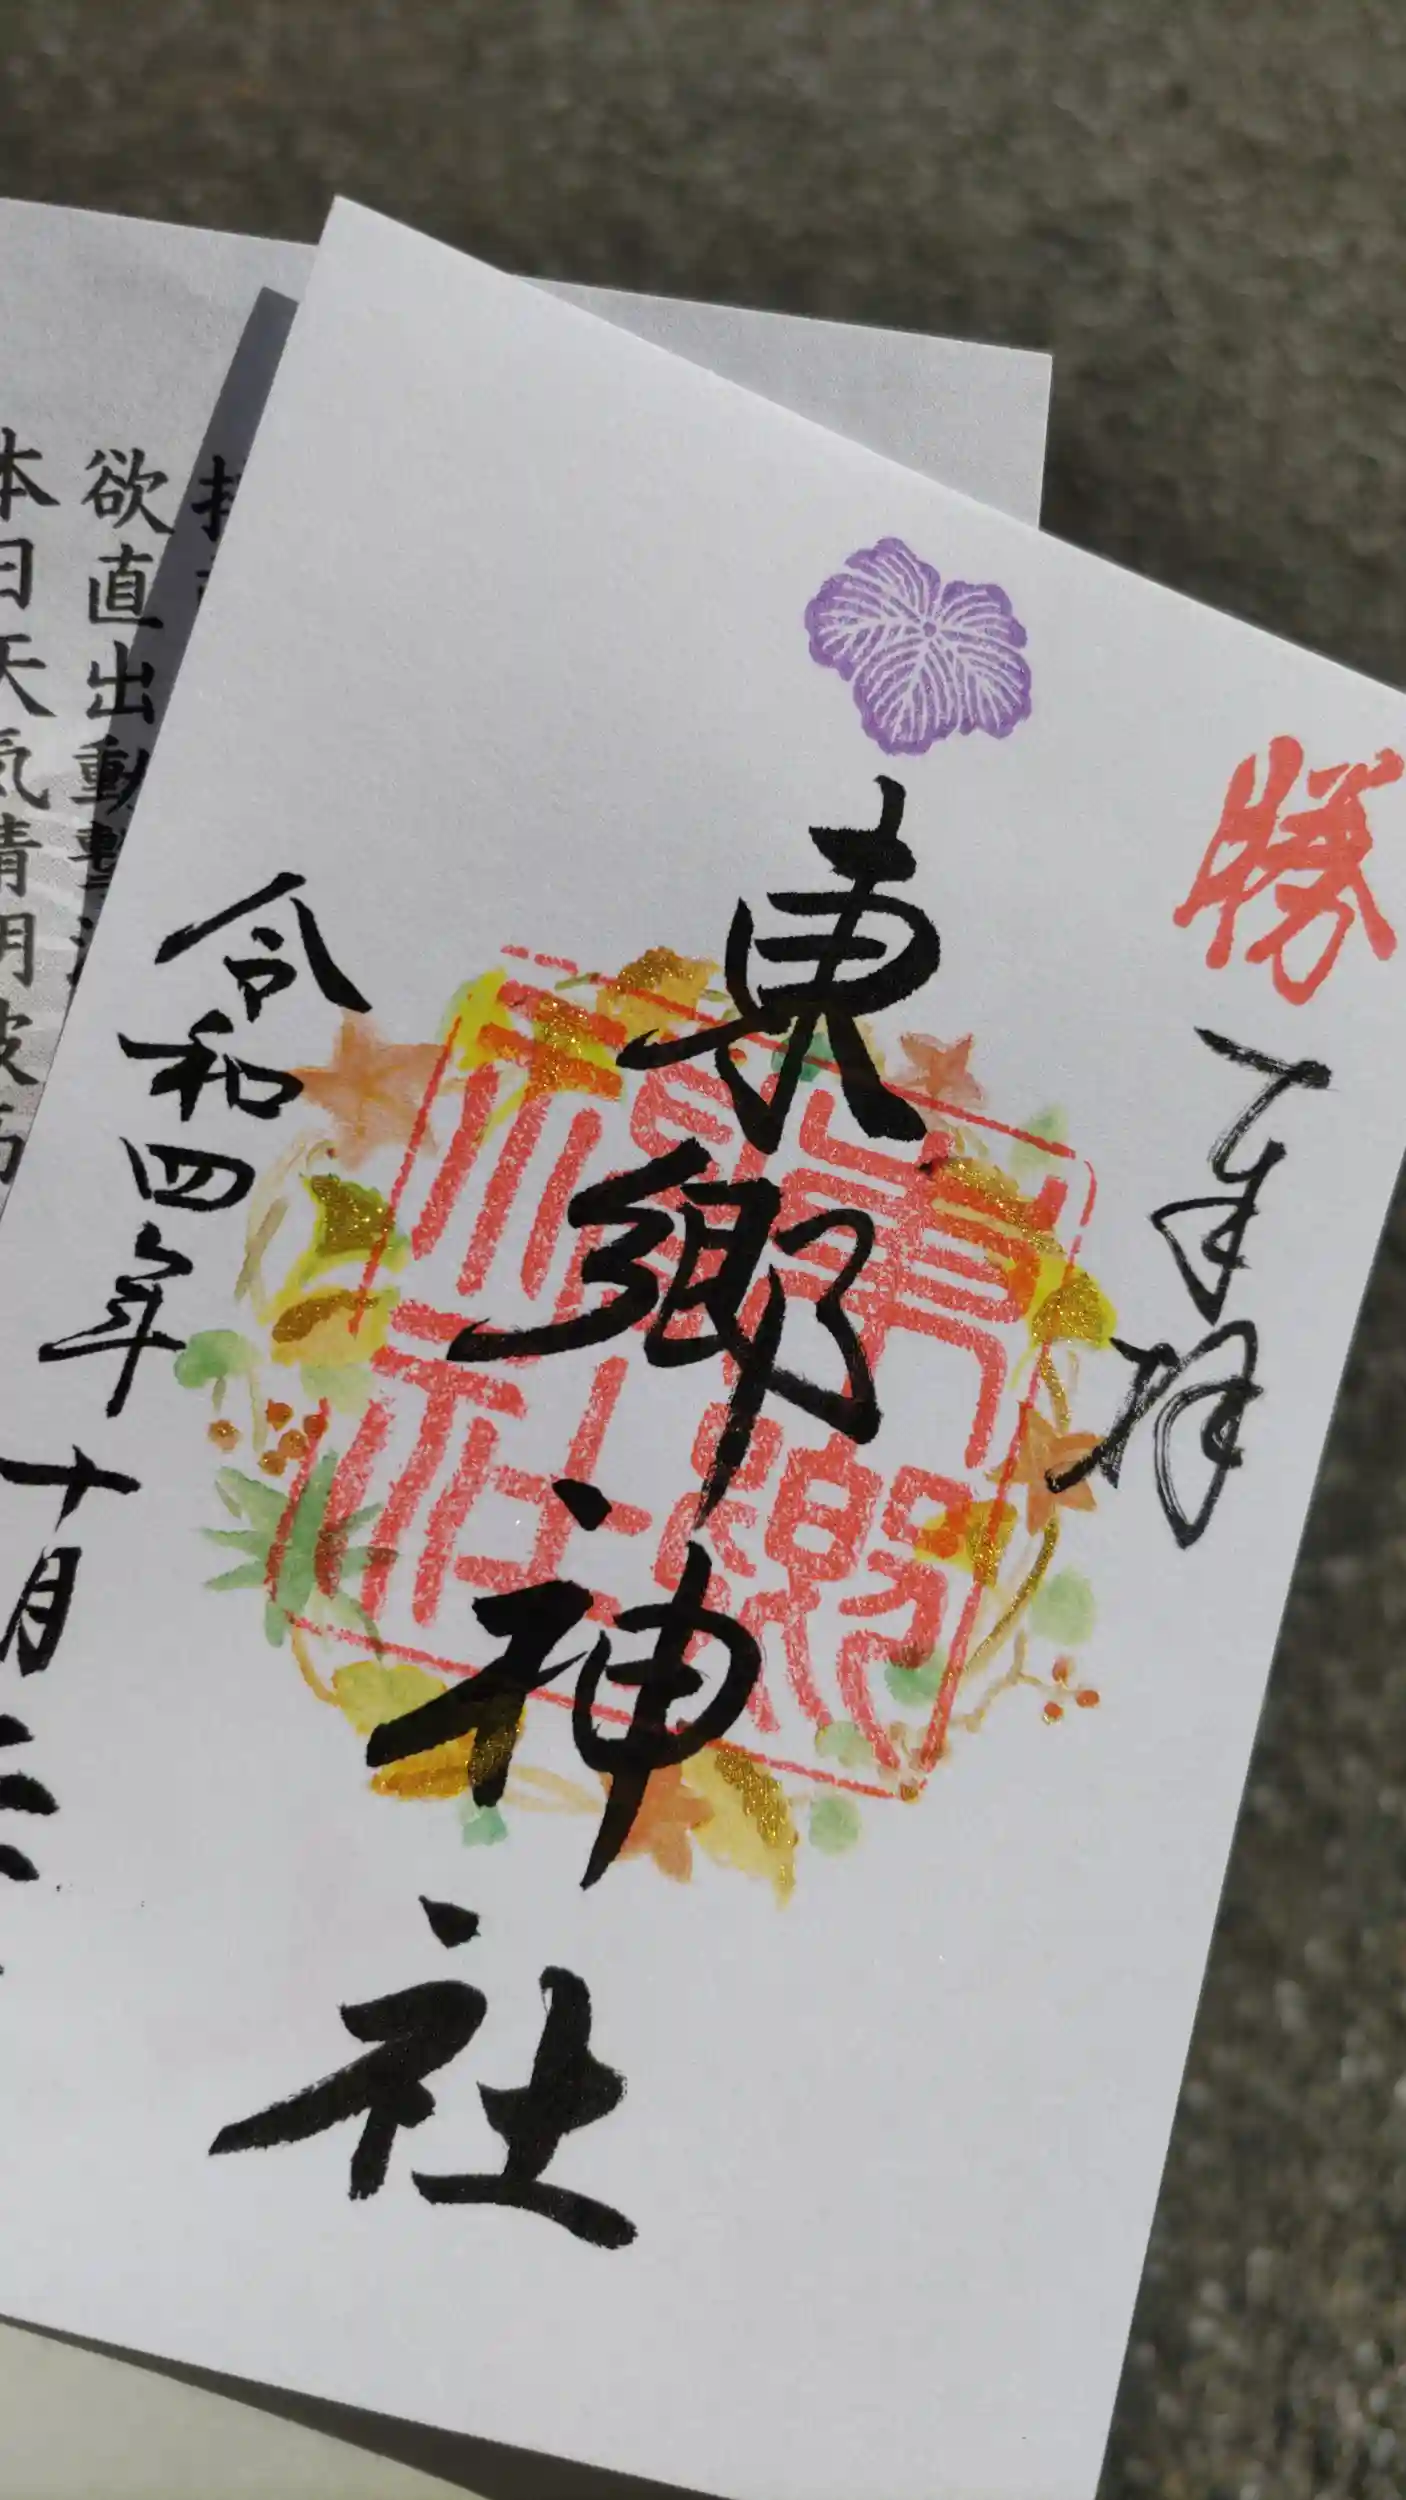 勝
奉拝
東郷神社
東郷神社
令和四年十月二
欲直出動
本日天氣晴明波高